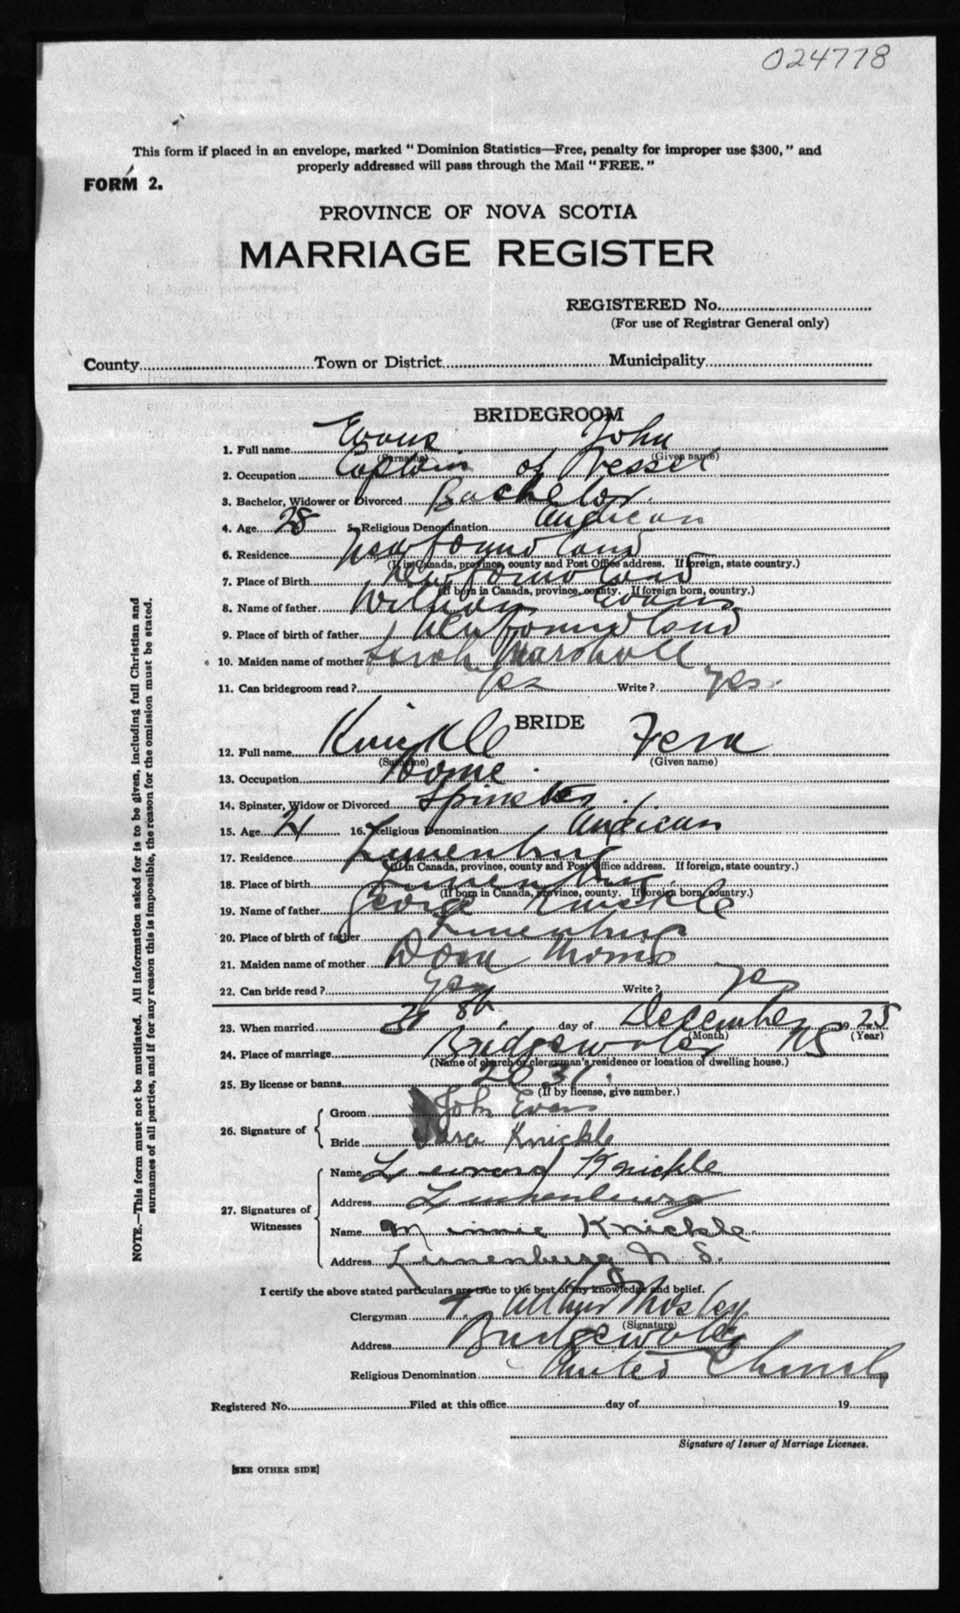 024778
This form if placed in an envelope, marked "Dominion Statistics—Free, penalty for improper use $300," and
properly addressed will pass through the Mail "FREE."
FORM 2.
PROVINCE OF NOVA SCOTIA
MARRIAGE REGISTER
REGISTERED No.
(For use of Registrar General only)
County Town or District Municipality
BRIDEGROOM
1. Full name Evans John
(Surname) (Given name)
2. Occupation Captain of Vessel
3. Bachelor, Widower or Divorced Bachelor.
4. Age 28 5. Religious Denomination Anglican
6. Residence Newfoundland
(If in Canada, province, county and Post Office address. If foreign, state country.)
7. Place of Birth Newfoundland
(If born in Canada, province, county. If foreign born, country.)
8. Name of father William Evans
9. Place of birth of father Newfoundland
10. Maiden name of mother Sarah Marshall
11. Can bridegroom read? yes Write? yes.
BRIDE
12. Full name Knickle Vera
(Surname) (Given name)
13. Occupation Home.
14. Spinster, Widow or Divorced Spinster.
15. Age 21 16. Religious Denomination Anglican
17. Residence Lunenburg
(If in Canada, province, county and Post Office address. If foreign, state country.)
18. Place of birth Lunenburg
(If born in Canada, province, county. If foreign born, country.)
19. Name of father George Knickle
20. Place of birth of father Lunenburg
21. Maiden name of mother Dora
22. Can bride read? yes Write? yes
23. When married day of December 1925
(Month) (Year)
24. Place of marriage Bridgewater NS
(Name of church or clergyman's residence or location of dwelling house.)
25. By license or banns
(If by license, give number.)
26. Signature of
Groom John Evans
Bride Vera Knickle
27. Signatures of Witnesses
Name Knickle
Address Lunenburg
Name Minnie Knickle
Address Lunenburg N. S.
I certify the above stated particulars are true to the best of my knowledge and belief.
Clergyman Arthur Mosley
(Signature)
Address Bridgewater
Religious Denomination United Church
Registered No. Filed at this office day of 19
Signature of Issuer of Marriage Licenses.
[SEE OTHER SIDE]
NOTE.—This form must not be mutilated. All information asked for is to be given, including full Christian and
surnames of all parties, and if for any reason this is impossible, the reason for the omission must be stated.